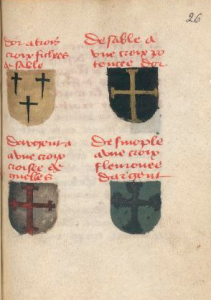 26
dor a trois
croix fichees
de sable
de sable a
une croix po
tencee dor
dargent a
une croix
croisee de
gueulles
de sinople
a une croix
fleuronee
dargent